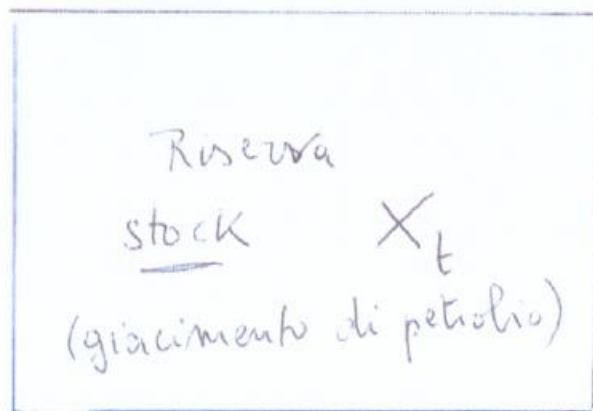 Riserva
stock X_t
(giacimento di petrolio)